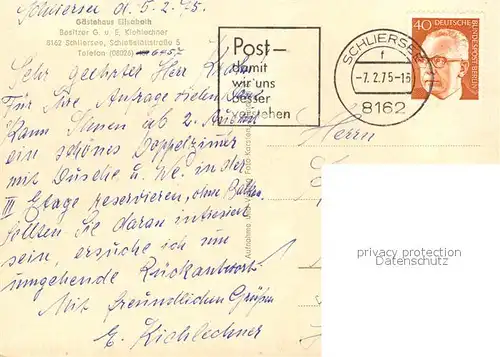 Schliersee d. 5.2.75.
Gästehaus Elisabeth
Besitzer G. u. E. Kichlechner
8162 Schliersee, Schließfachstraße 5
Telefon (08026)
Sehr geehrter Herr
Für Ihre Anfrage vielen Dank
Kann Ihnen ab 2. August
ein schönes Doppelzimmer
mit Dusche u. We. in der
III Etage reservieren, ohne Balkon.
Sollten Sie daran interessiert
sein, ersuche ich um
umgehende Rückantwort.
Mit freundlichen Grüßen
E. Kichlechner
Post –
damit
wir uns
besser
verstehen
SCHLIERSEE
f
-7.2.75-13
8162
40 DEUTSCHE
BUNDESPOST BERLIN
Herrn
privacy protection
Datenschutz